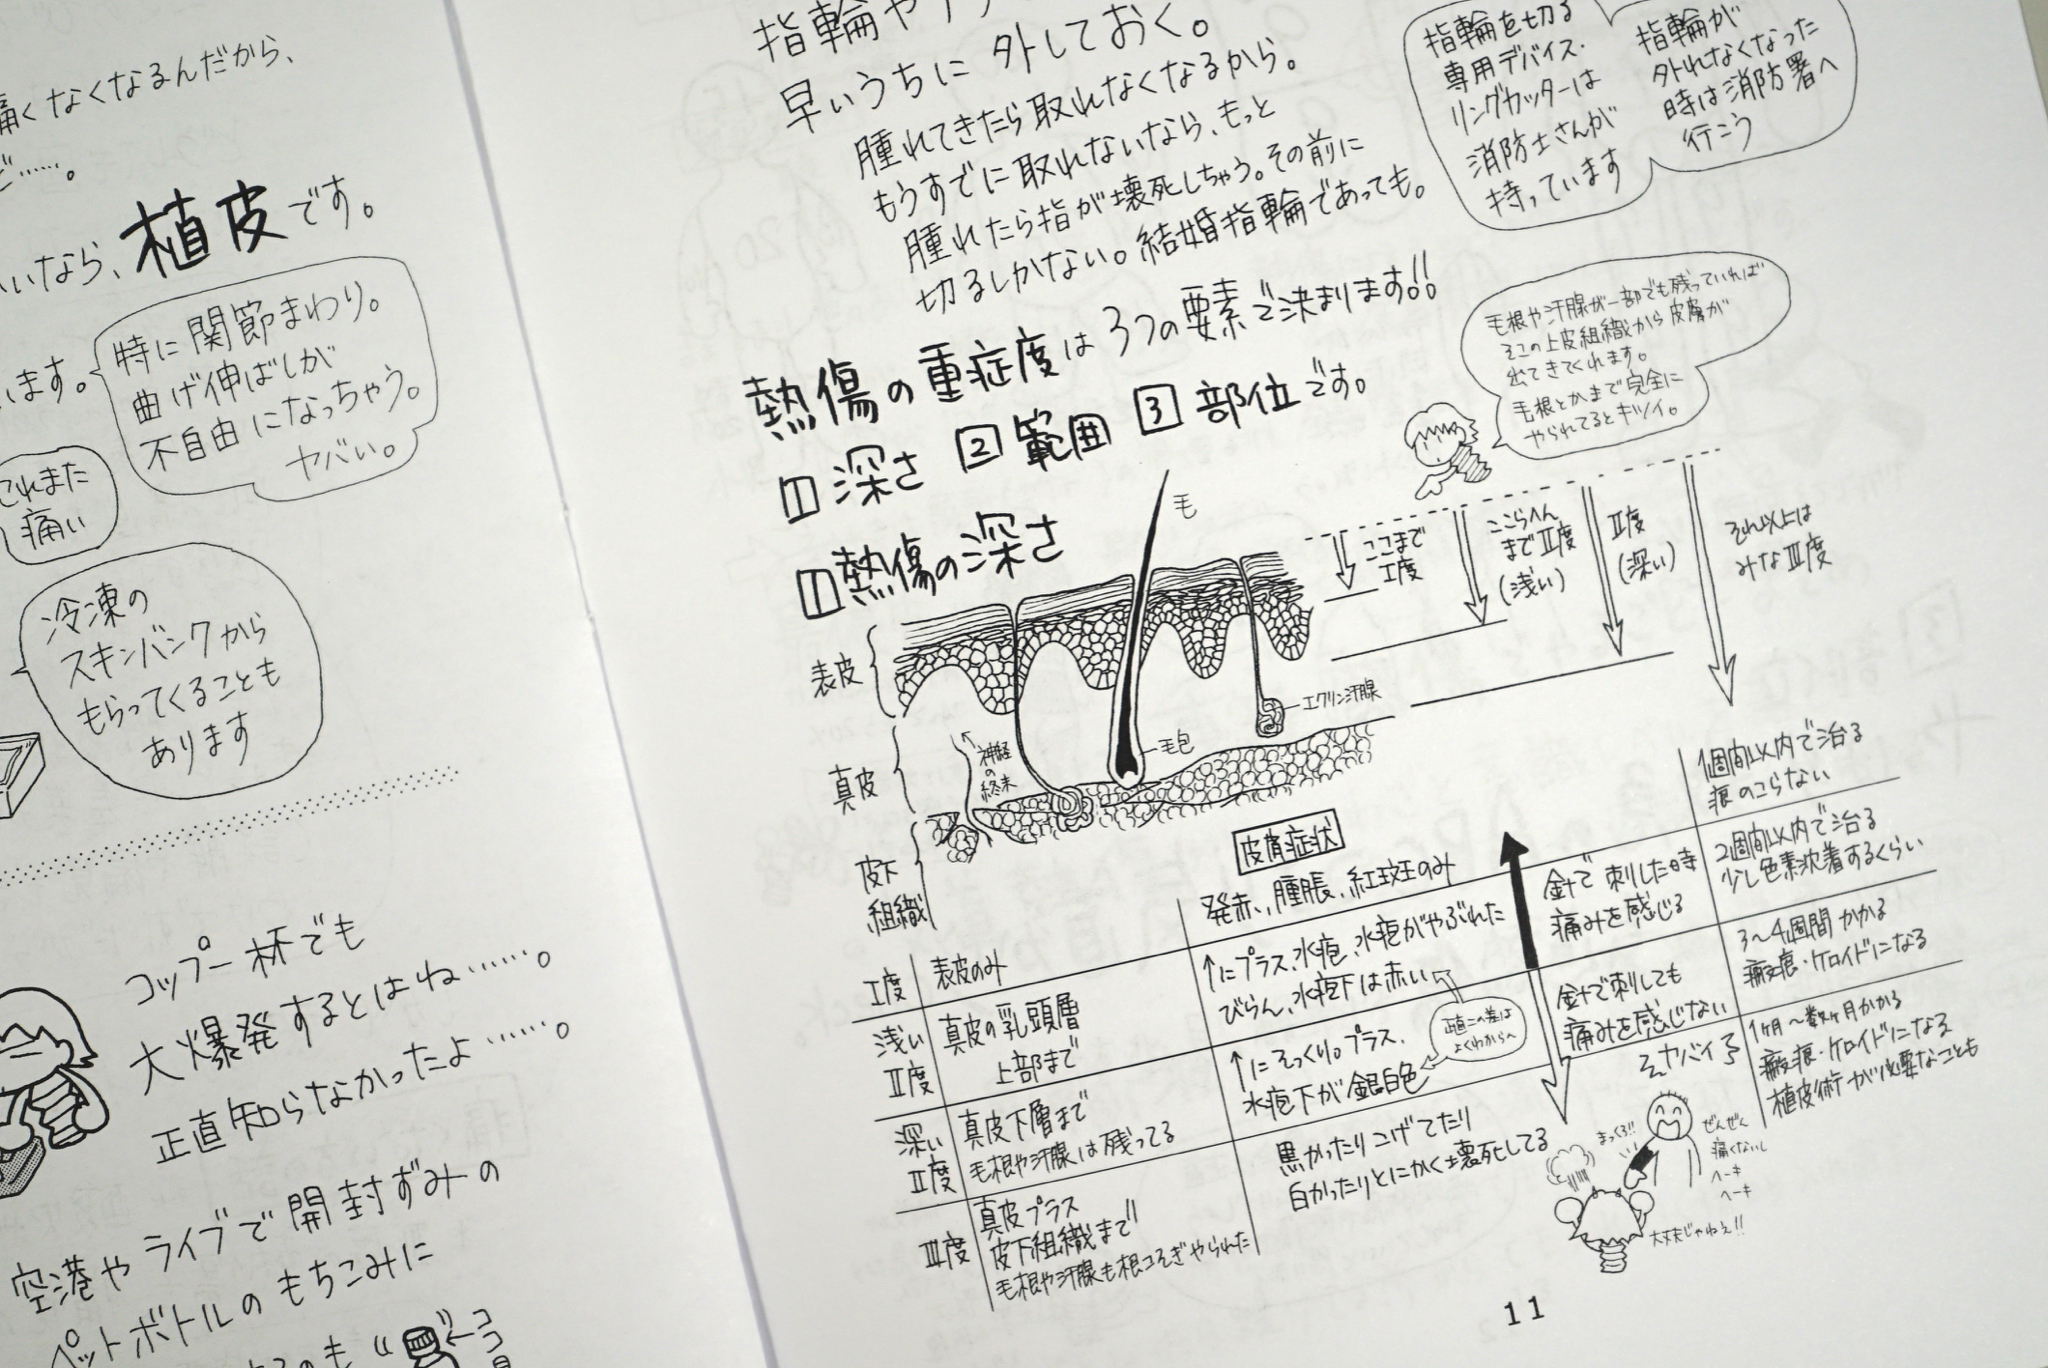 痛くなくなるんだから、
ど……。
いなら、植皮です。
特に関節まわり。
曲げ伸ばしが
不自由になっちゃう。
ヤバい。
います。
これまた
痛い
冷凍の
スキンバンクから
もらってくることも
あります
コップ一杯でも
大爆発するとはね……。
正直知らなかったよ……。
空港やライブで開封ずみの
ペットボトルのもちこみに
指輪や
外しておく。
早いうちに
腫れてきたら取れなくなるから。
もうすでに取れないなら、もっと
腫れたら指が壊死しちゃう。その前に
切るしかない。結婚指輪であっても。
指輪を切る
専用デバイス・
リングカッターは
消防士さんが
持っています
指輪が
外れなくなった
時は消防署へ
行こう
熱傷の重症度は3つの要素で決まります!!
1深さ 2範囲 3部位です。
毛根や汗腺が一部でも残っていれば
そこの上皮組織から皮膚が
出てきてくれます。
毛根とかまで完全に
やられてるとキツイ。
1熱傷の深さ
毛
ここまで
Ⅰ度
ここらへん
までⅡ度
(浅い)
Ⅱ度
(深い)
それ以上は
みなⅢ度
表皮
真皮
皮下
組織
神経
の
終末
毛包
エクリン汗腺
皮膚症状
Ⅰ度
表皮のみ
発赤、腫脹、紅斑のみ
針で刺した時
痛みを感じる
1週間以内で治る
痕のこらない
浅い
Ⅱ度
真皮の乳頭層
上部まで
↑にプラス、水疱、水疱がやぶれた
びらん、水疱下は赤い
2週間以内で治る
少し色素沈着するくらい
正直この差は
よくわからへん
深い
Ⅱ度
真皮下層まで
毛根や汗腺は残ってる
↑にそっくり。プラス、
水疱下が銀白色
針で刺しても
痛みを感じない
3〜4週間かかる
瘢痕・ケロイドになる
Ⅲ度
真皮プラス
皮下組織まで
毛根や汗腺も根こそぎやられた
黒かったりこげてたり
白かったりとにかく壊死してる
1ヶ月〜数ヶ月かかる
瘢痕・ケロイドになる
植皮術が必要なことも
ヤバイ
まっくろ!!
ぜんぜん
痛くないし
ヘーキ
ヘーキ
大丈夫じゃねぇ!!
11